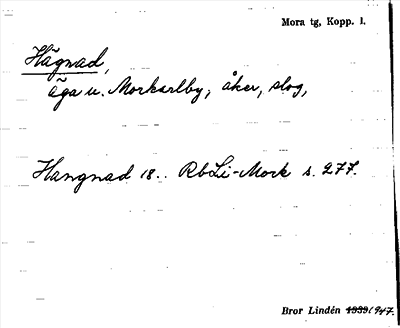 Mora tg, Kopp. l.
Hägnad,
äga u. Morkarlby, åker, slog,
Hangnad 18.. RbLi-Mork s. 277.
Bror Lindén 1939/947.